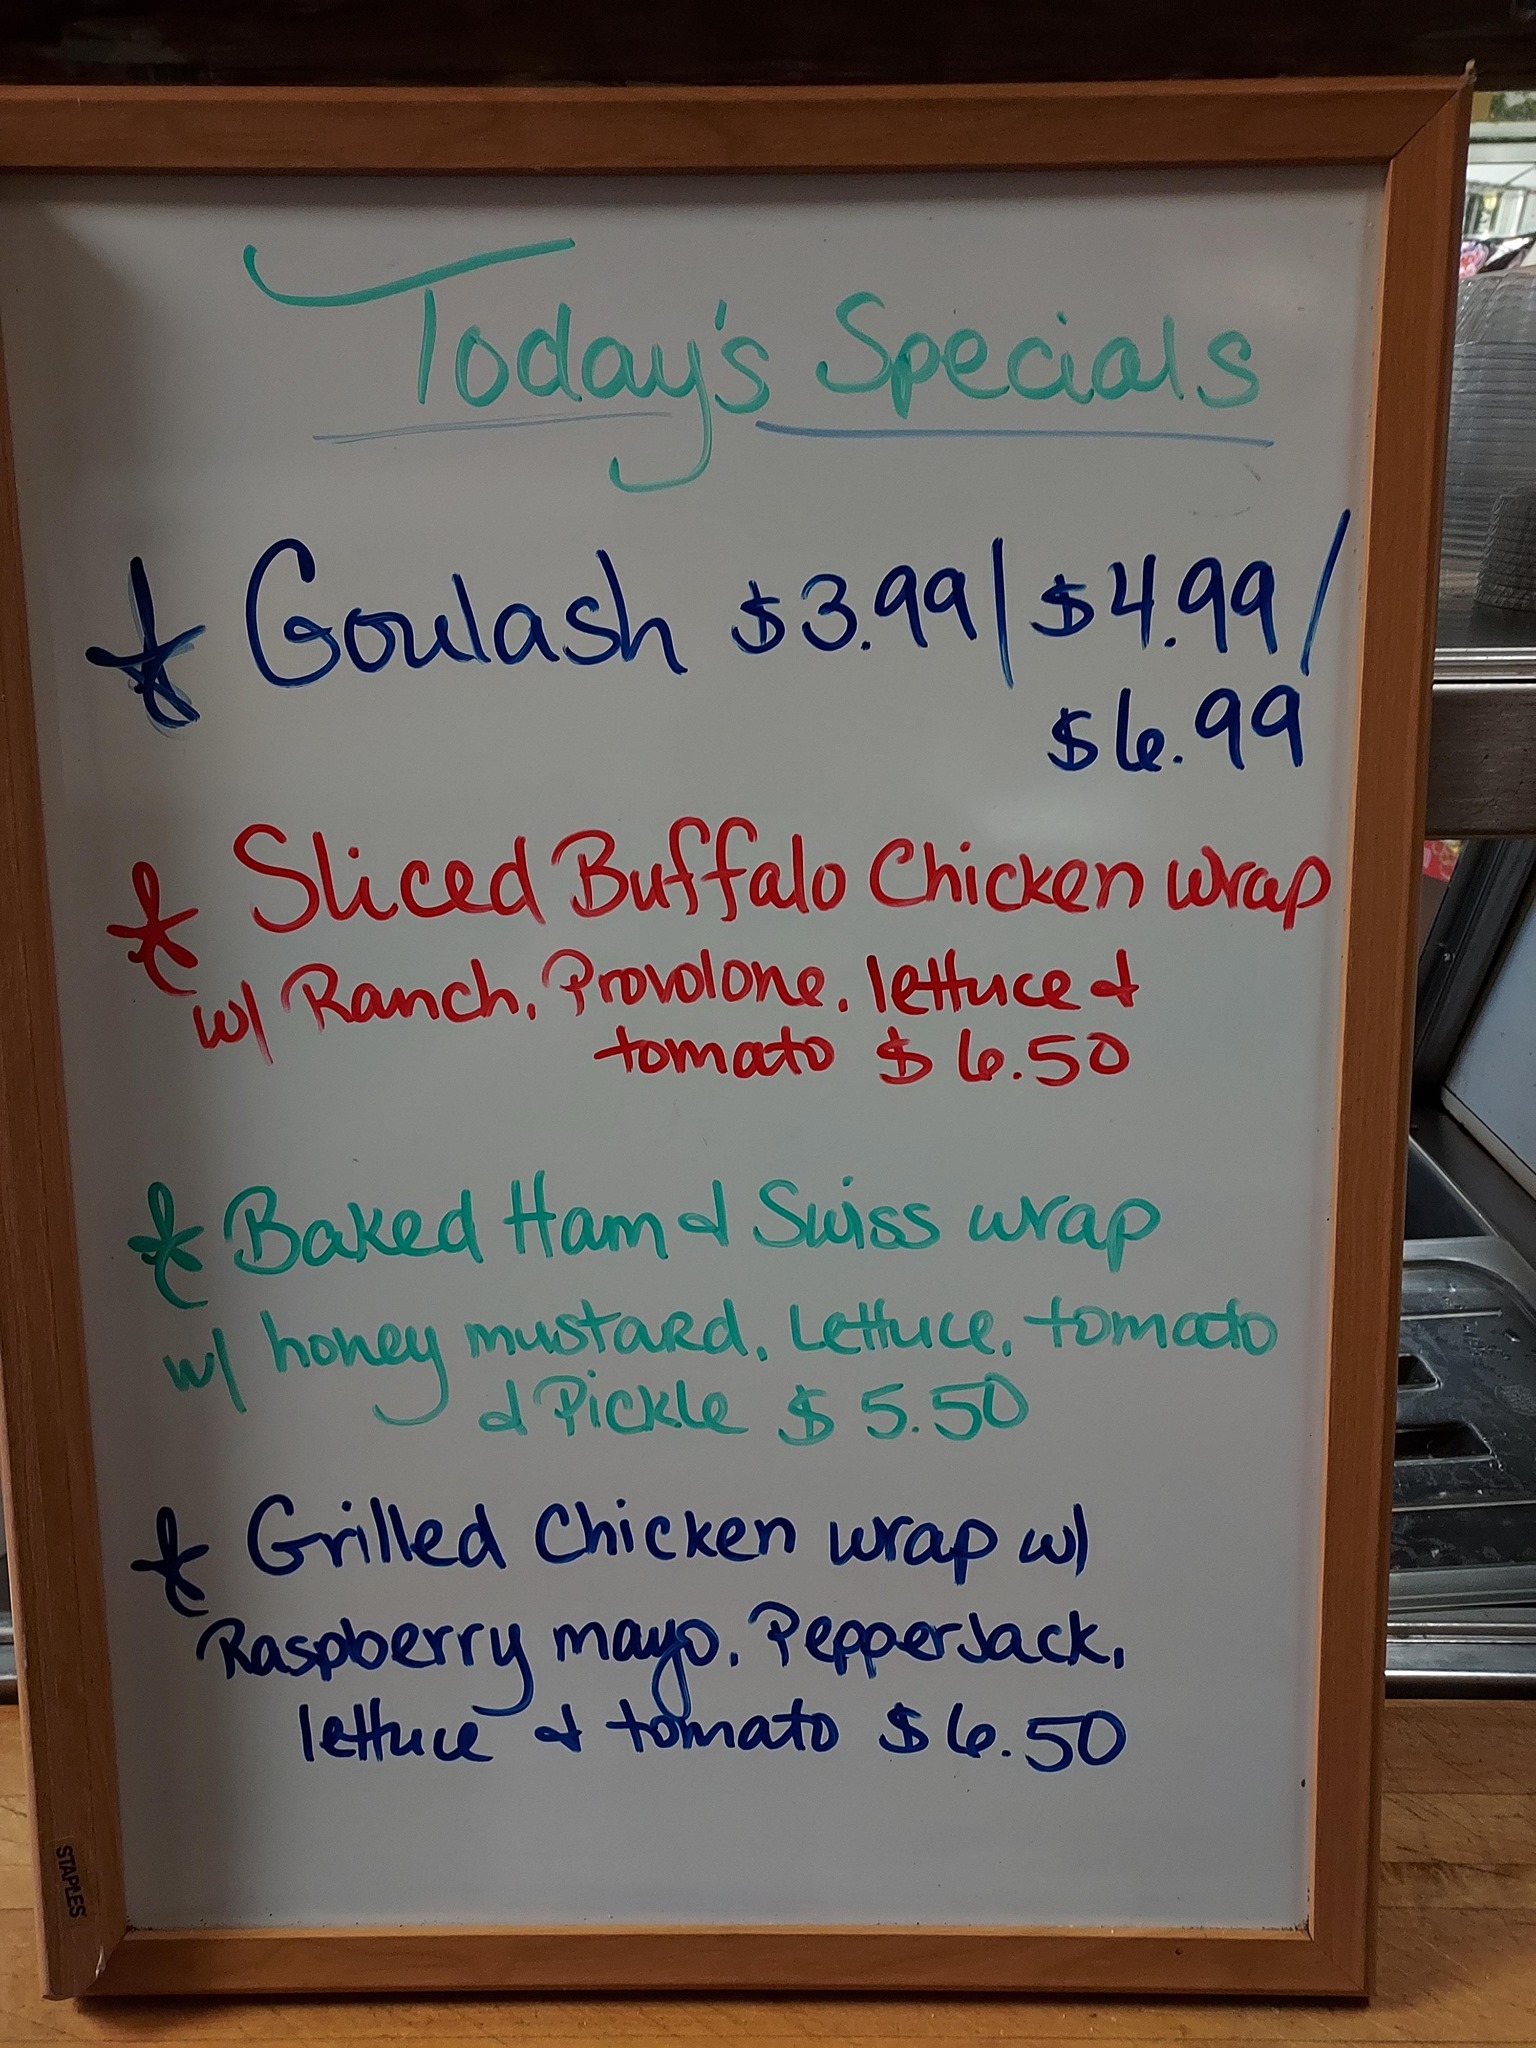 Today's Specials
* Goulash $3.99/$4.99/
$6.99
* Sliced Buffalo Chicken wrap
w/ Ranch, Provolone, lettuce &
tomato $6.50
* Baked Ham & Swiss wrap
w/ honey mustard, Lettuce, tomato
& Pickle $5.50
* Grilled Chicken wrap w/
Raspberry mayo, PepperJack,
lettuce & tomato $6.50
STAPLES